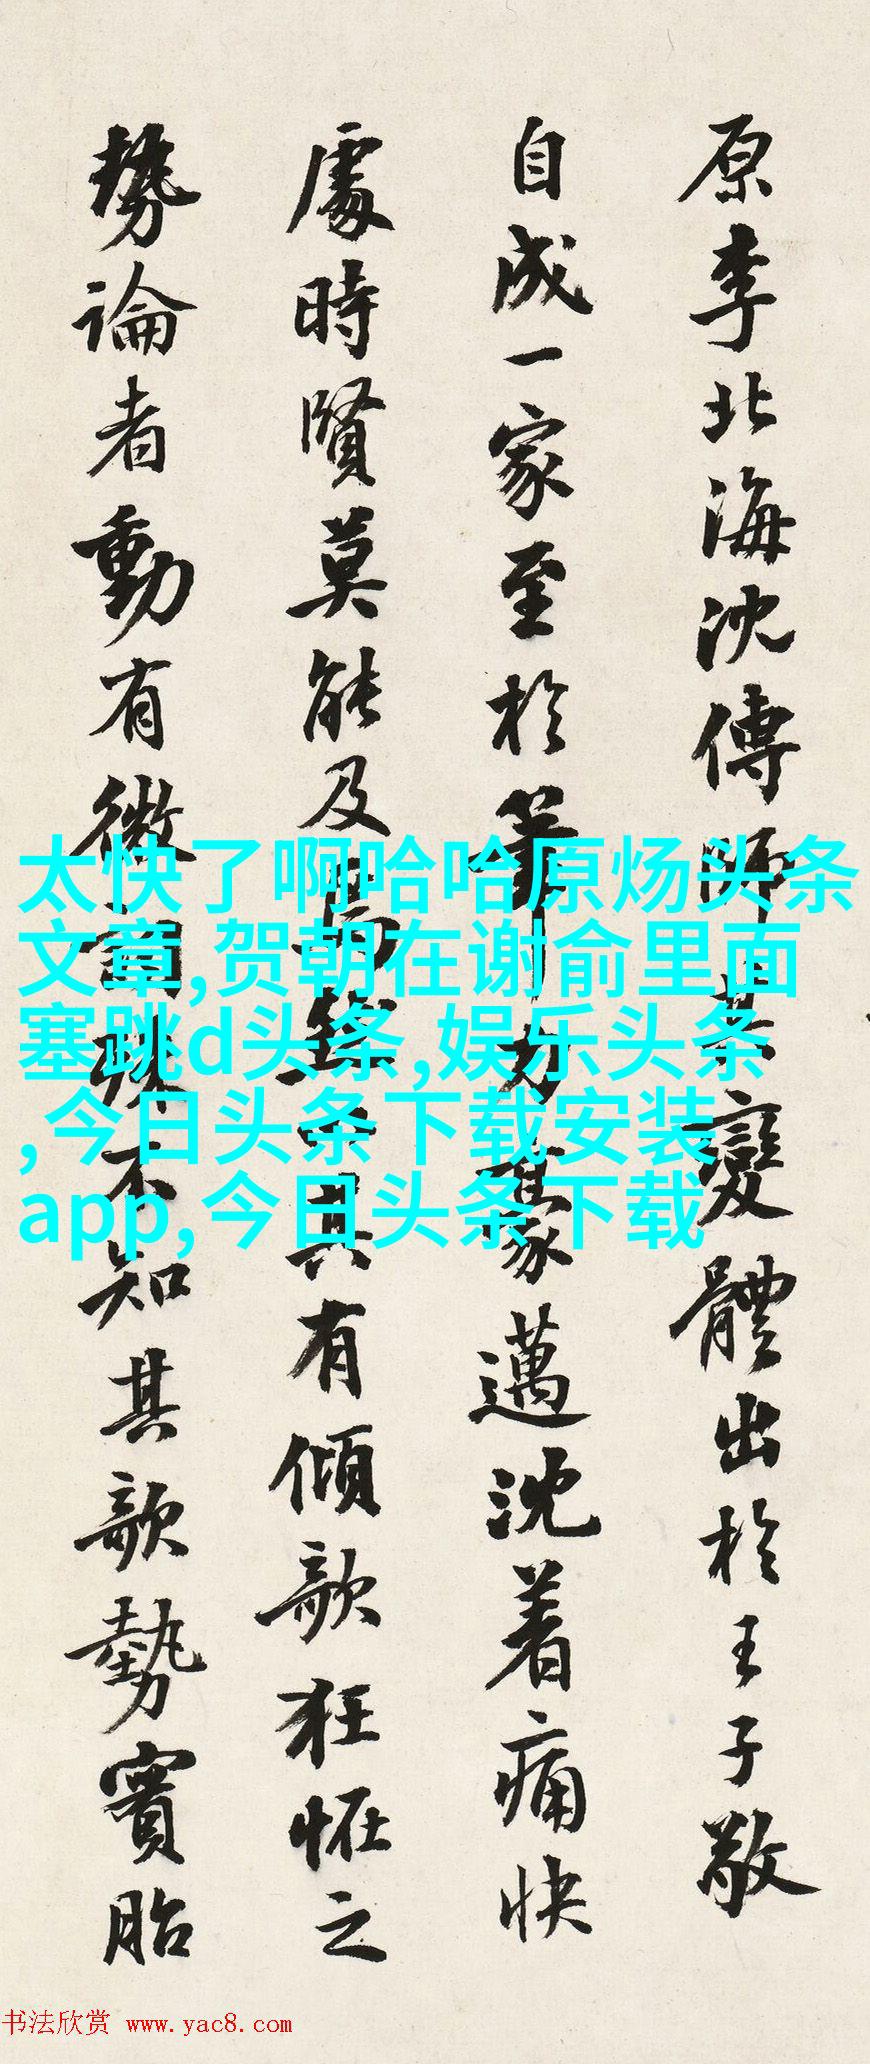 原李北海沈傳師其變體出於王子敬
自成一家至於筆力豪邁沈着痛快
處時賢莫能及其有傾歌狂怪之
勢論者動有微詞殊不知其歌勢實胎
太快了啊哈哈原炀头条
文章,贺朝在谢俞里面
塞跳d头条,娱乐头条
,今日头条下载安装
app,今日头条下载
书法欣赏 www.yac8.com